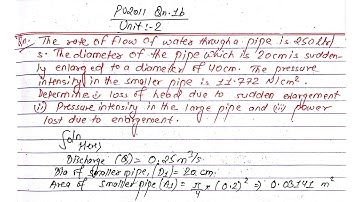 PU2011 Qn.1b
Unit:-2
Qn. The rate of flow of water through a pipe is 250 lit/
s. The diameter of the pipe which is 20cm is sudden-
ly enlarged to a diameter of 40cm. The pressure
intensity in the smaller pipe is 11.772 N/cm².
Determine: loss of head due to sudden enlargement
(ii) Pressure intensity in the large pipe and (iii) power
lost due to enlargement.
Soln
Here,
Discharge (Q) = 0.25 m³/s
Dia of smaller pipe, (D1) = 20 cm.
Area of smaller pipe (A1) = π/4 × (0.2)² ⇒ 0.03141 m²